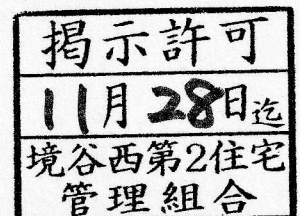 掲示許可
11月28日迄
境谷西第2住宅
管理組合